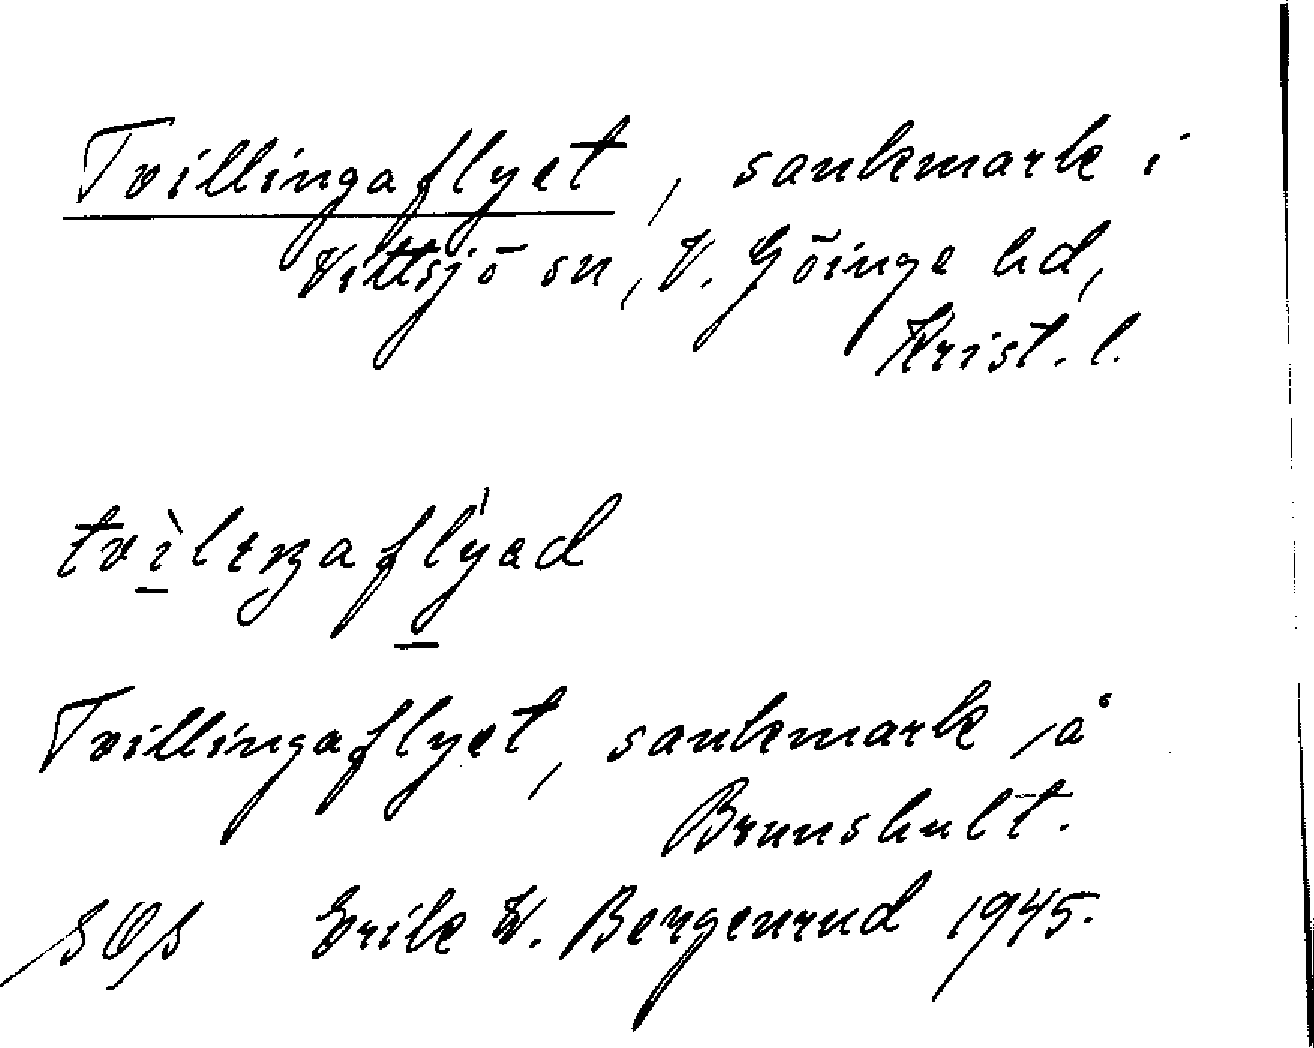 Tvillingaflyet, sankmark i
Vittsjö sn, V. Göinge hd,
Krist. l.
tvìlıŋaflýed
Tvillingaflyet, sankmark å
Brunshult.
SOS Erik W. Bergenrud 1945.